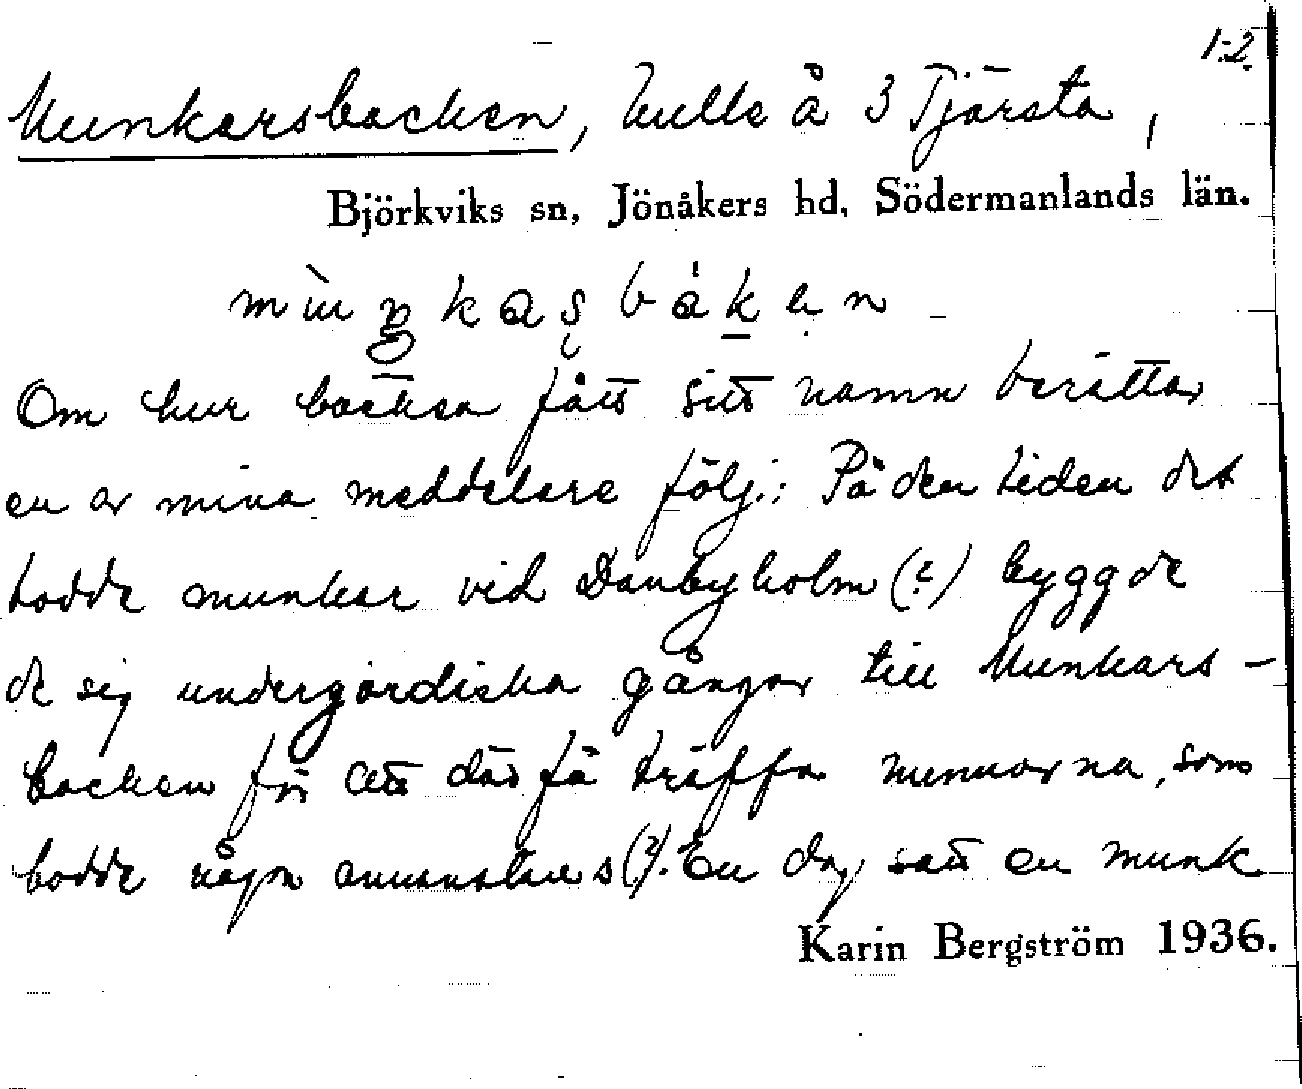 1-2.
Munkarsbacken, kulle å 3 Tjärsta,
Björkviks sn, Jönåkers hd, Södermanlands län.
Om hur backen fått sitt namn berättar
en av mina meddelare följ.: På den tiden det
bodde munkar vid Danbyholm (?) byggde
de sig underjordiska gångar till Munkars-
backen för att där få träffa nunnorna, som
bodde någon annanstans (?). En dag satt en munk
Karin Bergström 1936.